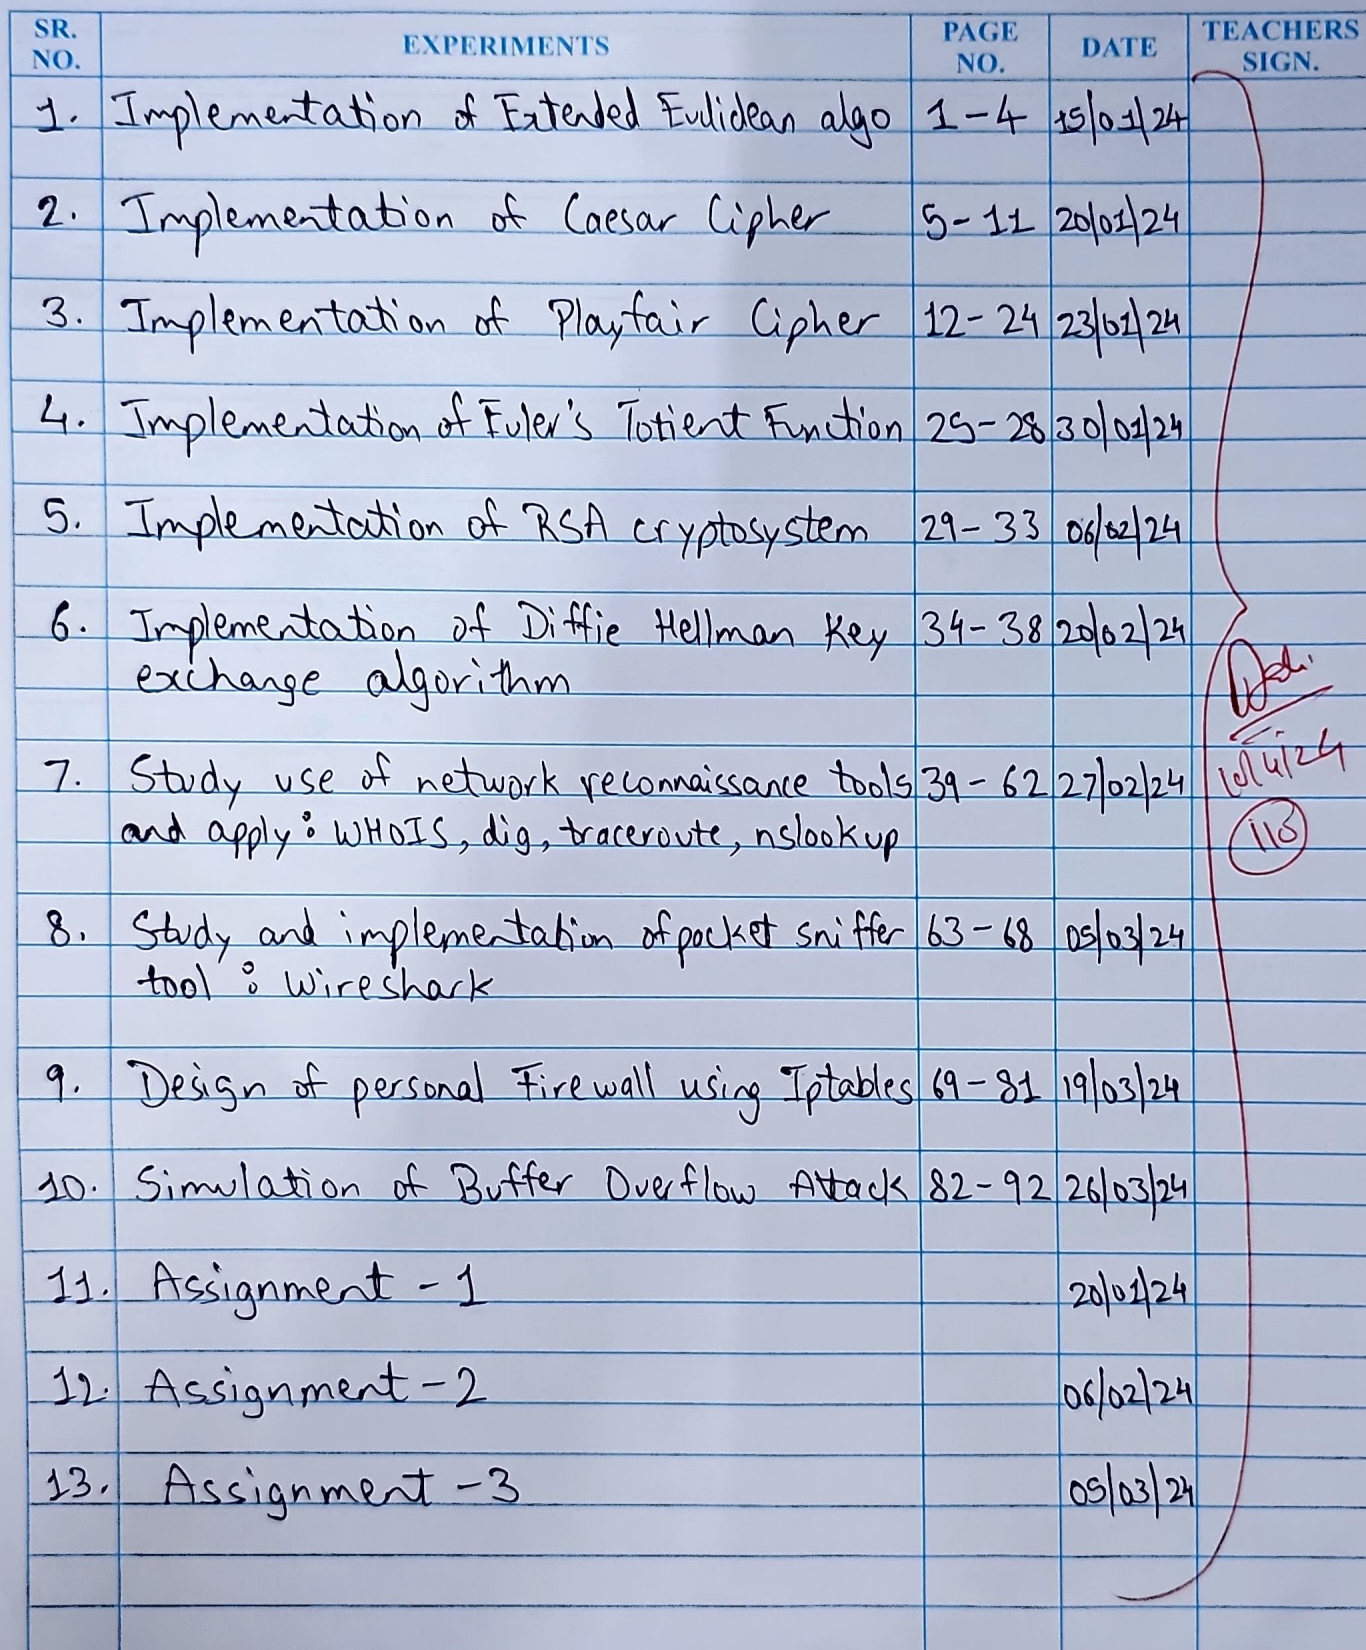 SR. NO. EXPERIMENTS PAGE NO. DATE TEACHERS SIGN.
1. Implementation of Extended Eulidean algo 1-4 15/01/24
2. Implementation of Caesar Cipher 5-11 20/01/24
3. Implementation of Playfair Cipher 12-24 23/01/24
4. Implementation of Euler's Totient Function 25-28 30/01/24
5. Implementation of RSA cryptosystem 29-33 06/02/24
6. Implementation of Diffie Hellman Key 34-38 20/02/24
exchange algorithm
7. Study use of network reconnaissance tools 39-62 27/02/24
and apply: WHOIS, dig, traceroute, nslookup
8. Study and implementation of packet sniffer 63-68 05/03/24
tool: Wireshark
9. Design of personal Firewall using Iptables 69-81 19/03/24
10. Simulation of Buffer Overflow Attack 82-92 26/03/24
11. Assignment-1 20/01/24
12. Assignment-2 06/02/24
13. Assignment-3 05/03/24